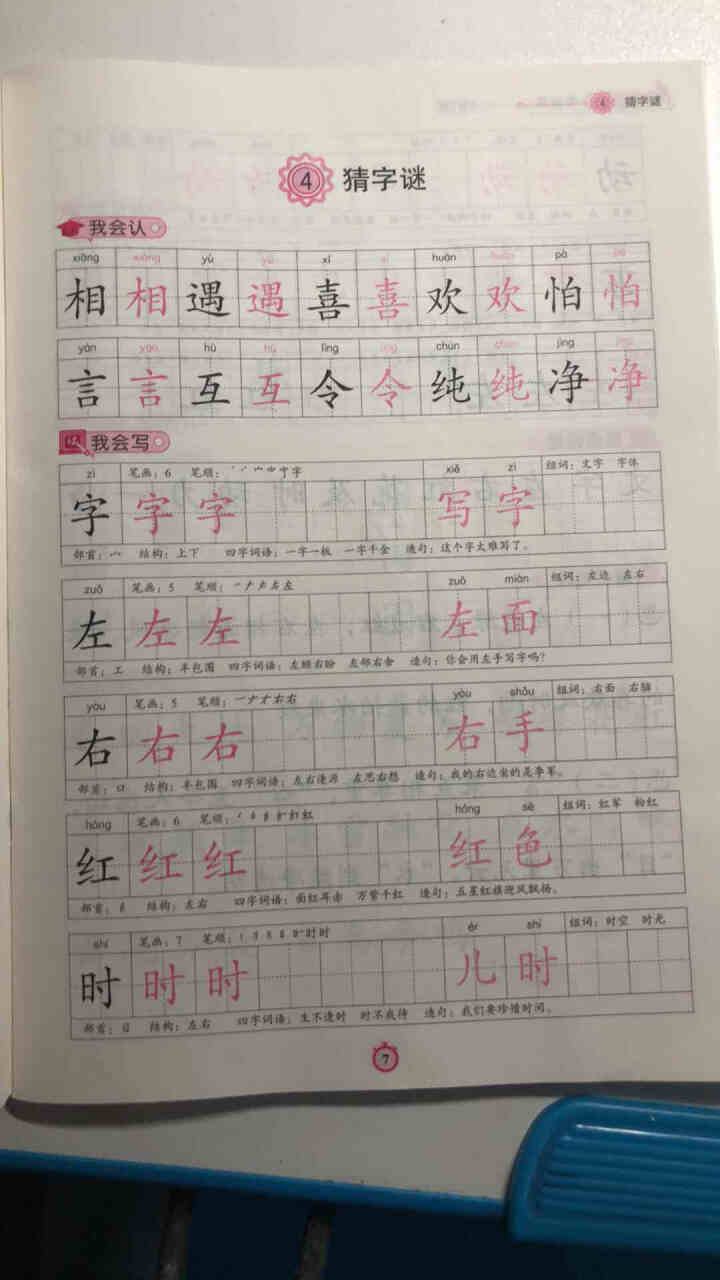 4 猜字谜
4 猜字谜
我会认
xiāng xiāng yù yù xǐ xǐ huān huān pà pà
相 相 遇 遇 喜 喜 欢 欢 怕 怕
yán yán hù hù lìng lìng chún chún jìng jìng
言 言 互 互 令 令 纯 纯 净 净
我会写
zì 笔画：6 笔顺： xiě zì 组词：文字 字体
字 字 字 写 字
部首：宀 结构：上下 四字词语：一字一板 一字千金 造句：这个字太难写了。
zuǒ 笔画：5 笔顺：一ナ𠂇左左 zuǒ miàn 组词：左边 左右
左 左 左 左 面
部首：工 结构：半包围 四字词语：左顾右盼 左邻右舍 造句：你会用左手写字吗？
yòu 笔画：5 笔顺：一ナ右右 yòu shǒu 组词：右面 右脑
右 右 右 右 手
部首：口 结构：半包围 四字词语：左右逢源 左思右想 造句：我的右边坐的是李军。
hóng 笔画：6 笔顺： hóng sè 组词：红军 粉红
红 红 红 红 色
部首：纟 结构：左右 四字词语：面红耳赤 万紫千红 造句：五星红旗迎风飘扬。
shí 笔画：7 笔顺： ér shí 组词：时空 时光
时 时 时 儿 时
部首：日 结构：左右 四字词语：生不逢时 时不我待 造句：我们要珍惜时间。
7